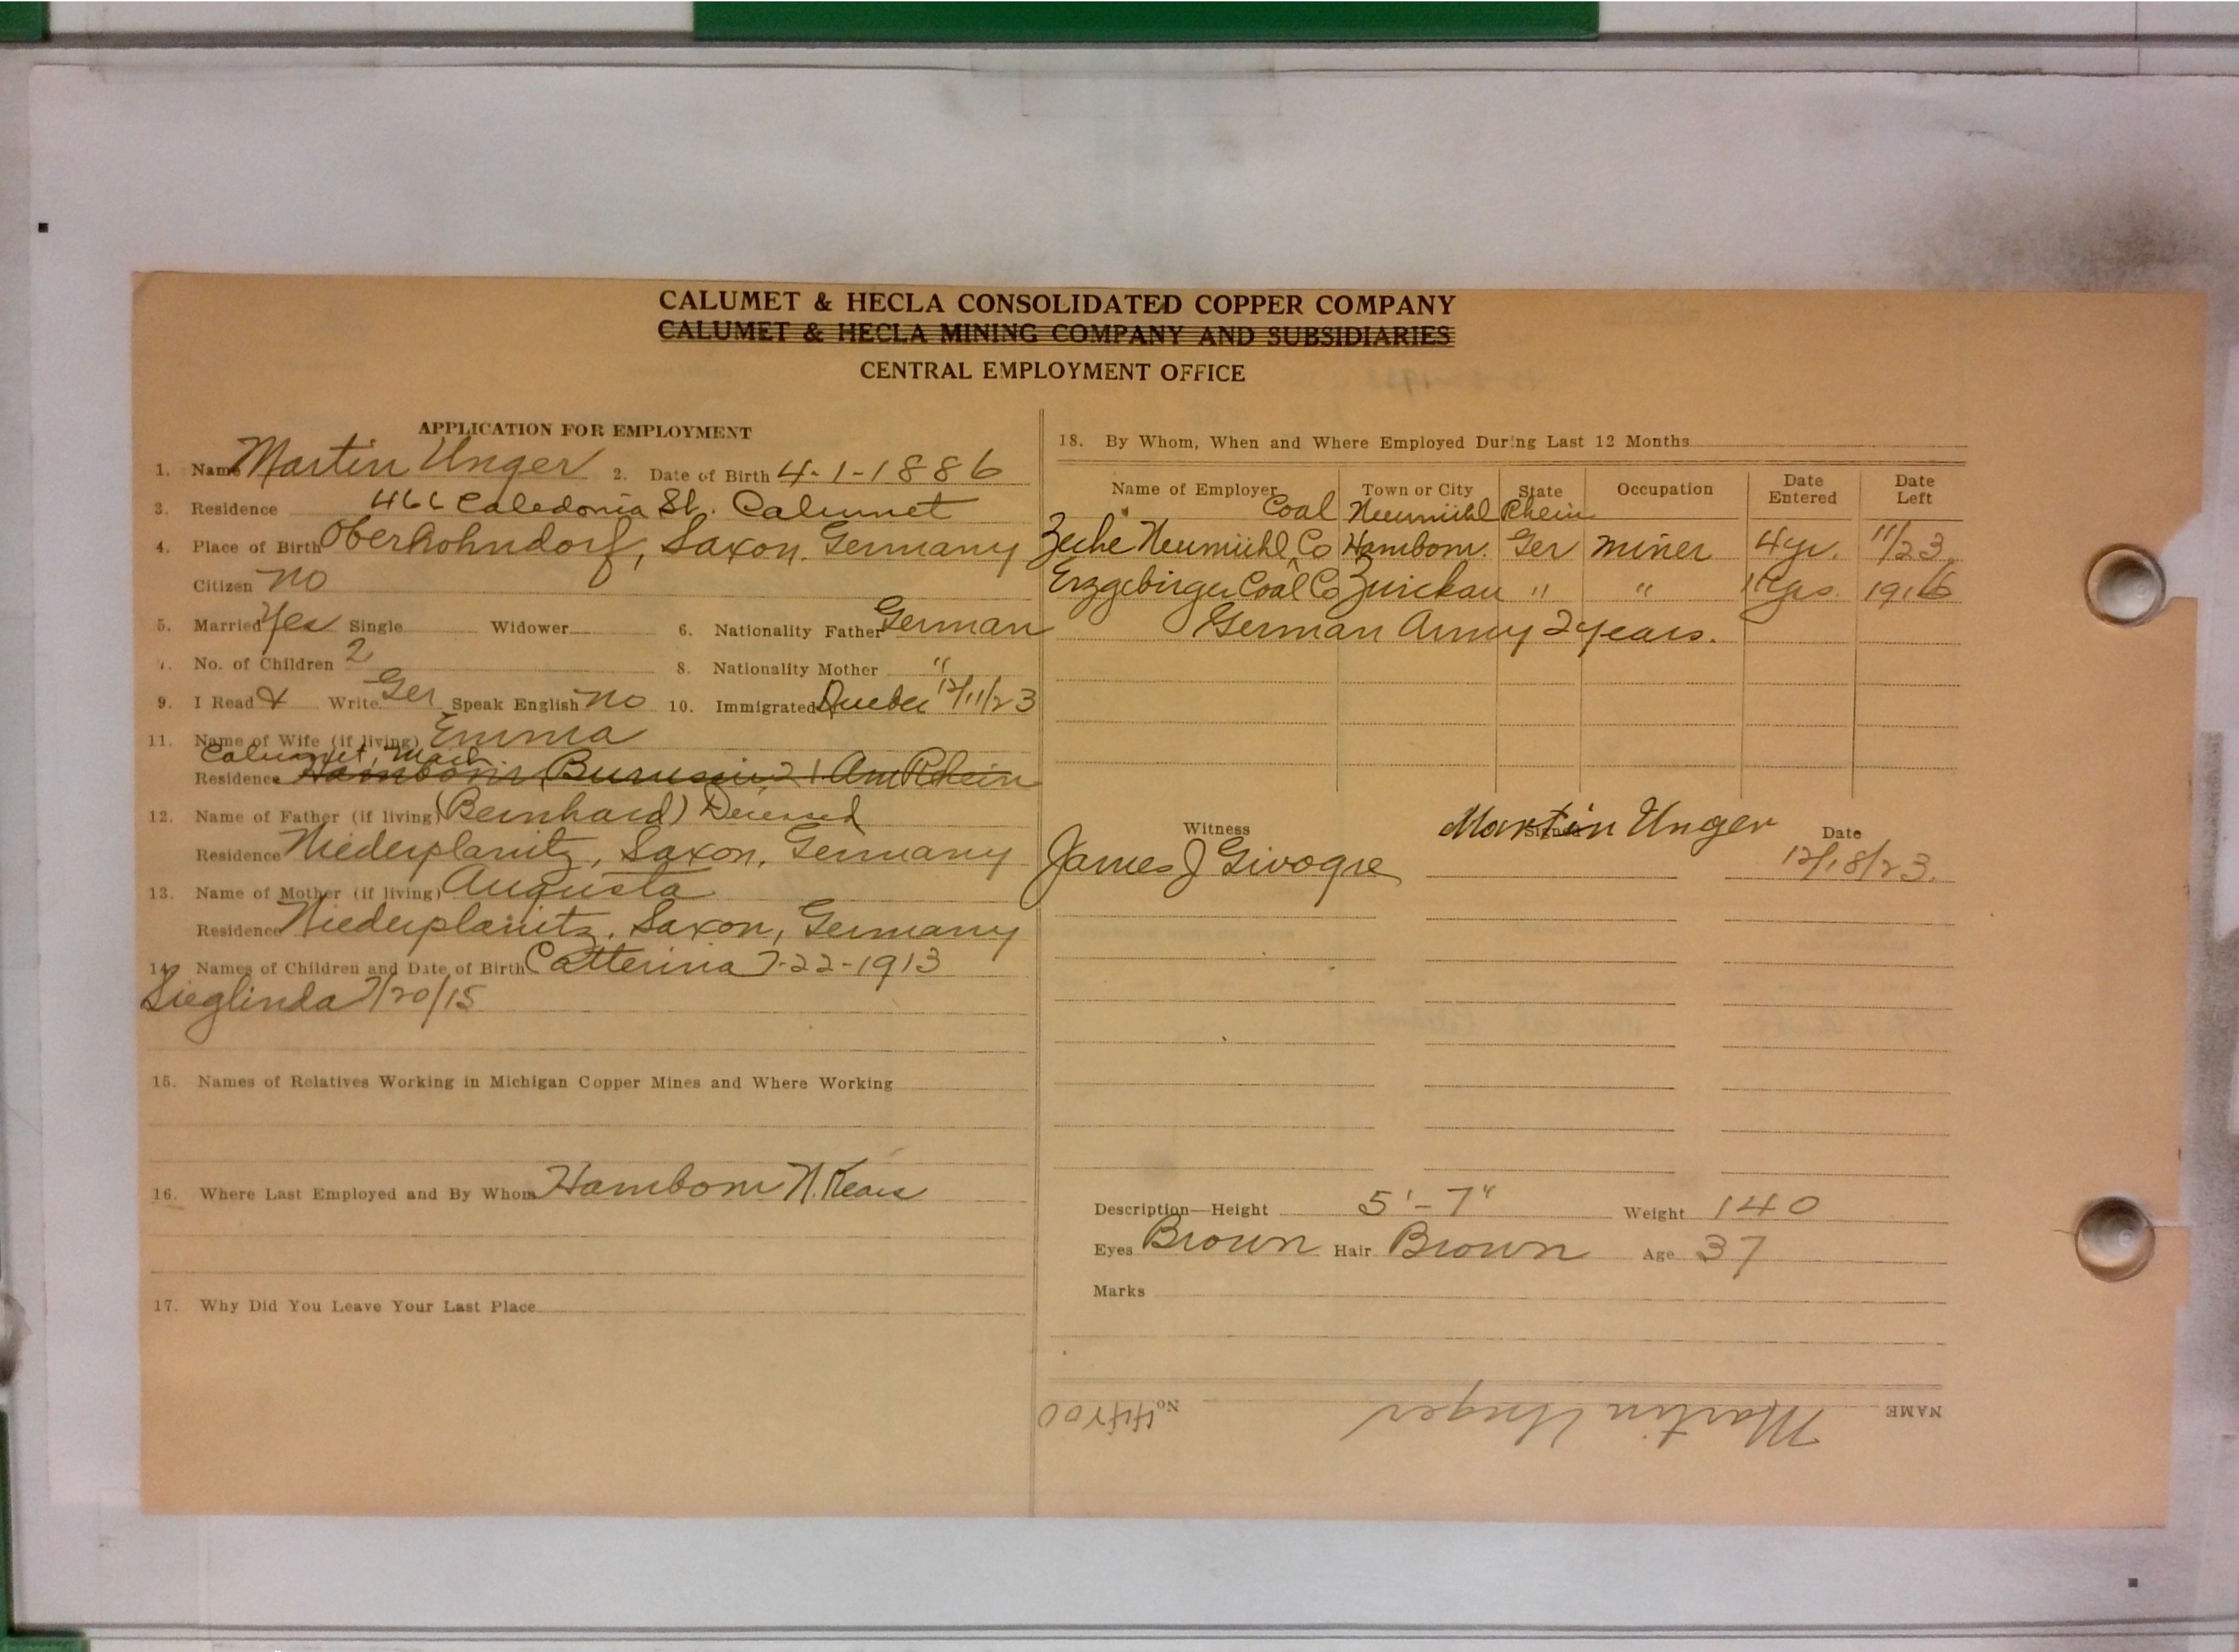 CALUMET & HECLA CONSOLIDATED COPPER COMPANY
CALUMET & HECLA MINING COMPANY AND SUBSIDIARIES
CENTRAL EMPLOYMENT OFFICE
APPLICATION FOR EMPLOYMENT
1. Name Martin Unger 2. Date of Birth 4-1-1886
3. Residence Caledonia St. Calumet
4. Place of Birth Oberhohndorf, Saxon. Germany
Citizen no
5. Married Yes Single Widower 6. Nationality Father German
7. No. of Children 2 8. Nationality Mother "
9. I Read & Write Ger Speak English no 10. Immigrated Quebec 12/11/23
11. Name of Wife (if living) Emma
Calumet, Mich
Residence Hamborn, 21 Am Rhein
12. Name of Father (if living) (Bernhard) Deceased
Residence Niederplanitz, Saxon, Germany
13. Name of Mother (if living) Augusta
Residence Niederplanitz, Saxon, Germany
14. Names of Children and Date of Birth Catterina 7-22-1913
Sieglinda 7/20/15
15. Names of Relatives Working in Michigan Copper Mines and Where Working
16. Where Last Employed and By Whom Hamborn
17. Why Did You Leave Your Last Place
18. By Whom, When and Where Employed During Last 12 Months
Name of Employer Town or City State Occupation Date Entered Date Left
Coal Neumühl Rhein
Zeche Neumühl Co Hamborn. Ger miner 4 yr. 11/23
Erzgebirger Coal Co Zwickau " " yrs. 1916
German Army 2 years.
Witness Signed Martin Unger Date
James J Givogre 12/18/23.
Description—Height 5'-7" Weight 140
Eyes Brown Hair Brown Age 37
Marks
NAME Martin Unger No.